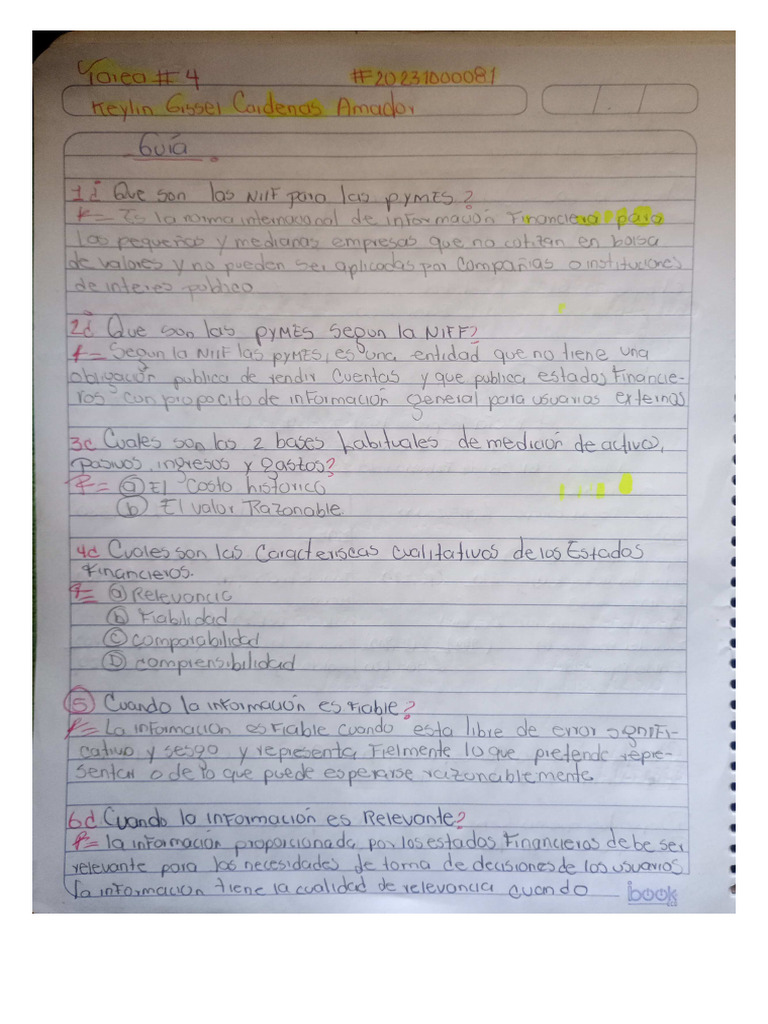 Tarea # 4 #20231000081
Keylin Gissel Cardenas Amador
Guía
1¿ Que son las NIIF para las PYMES?
R= Es la norma internacional de información Financiera para
las pequeñas y medianas empresas que no cotizan en bolsa
de valores y no pueden ser aplicadas por compañias o instituciones
de interes publico
2¿ Que son las PYMES Segun la NIFF?
R= Segun la NIIF las PYMES, es una entidad que no tiene una
obligación publica de rendir cuentas y que publica estados Financie-
ros con propocito de información general para usuarias externas
3¿ Cuales son las 2 bases habituales de medición de activo,
pasivos, ingresos y gastos?
R= a El Costo historico
b El valor Razonable.
4¿ Cuales son las Caracteriscas cualitativas de los Estados
Financieros.
R= a Relevancia
b Fiabilidad
c comparabilidad
D comprensibilidad
5 Cuando la información es Fiable?
R= La información es Fiable cuando esta libre de error signifi-
cativo y sesgo y representa Fielmente lo que pretende repre-
sentar o de lo que puede esperarse razonablemente
6¿ Cuando la información es Relevante?
R= la información proporcionada por los estados Financieros debe ser
relevante para las necesidades de toma de decisiones de los usuarios
la información tiene la cualidad de relevancia cuando
book